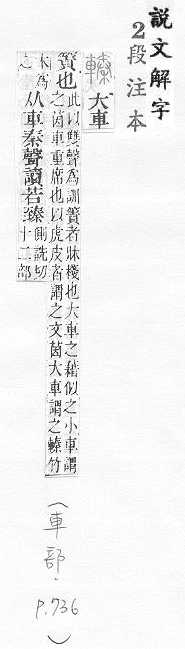 說文解字
2段注本
轃 大車
簀也 此以雙聲為訓簀者牀棧也大車之藉似之小車謂
之茵車重席也以虎皮者謂之文茵大車謂之轃竹
木為
之
从車秦聲讀若臻 側詵切
十二部
(車部.
P.736)